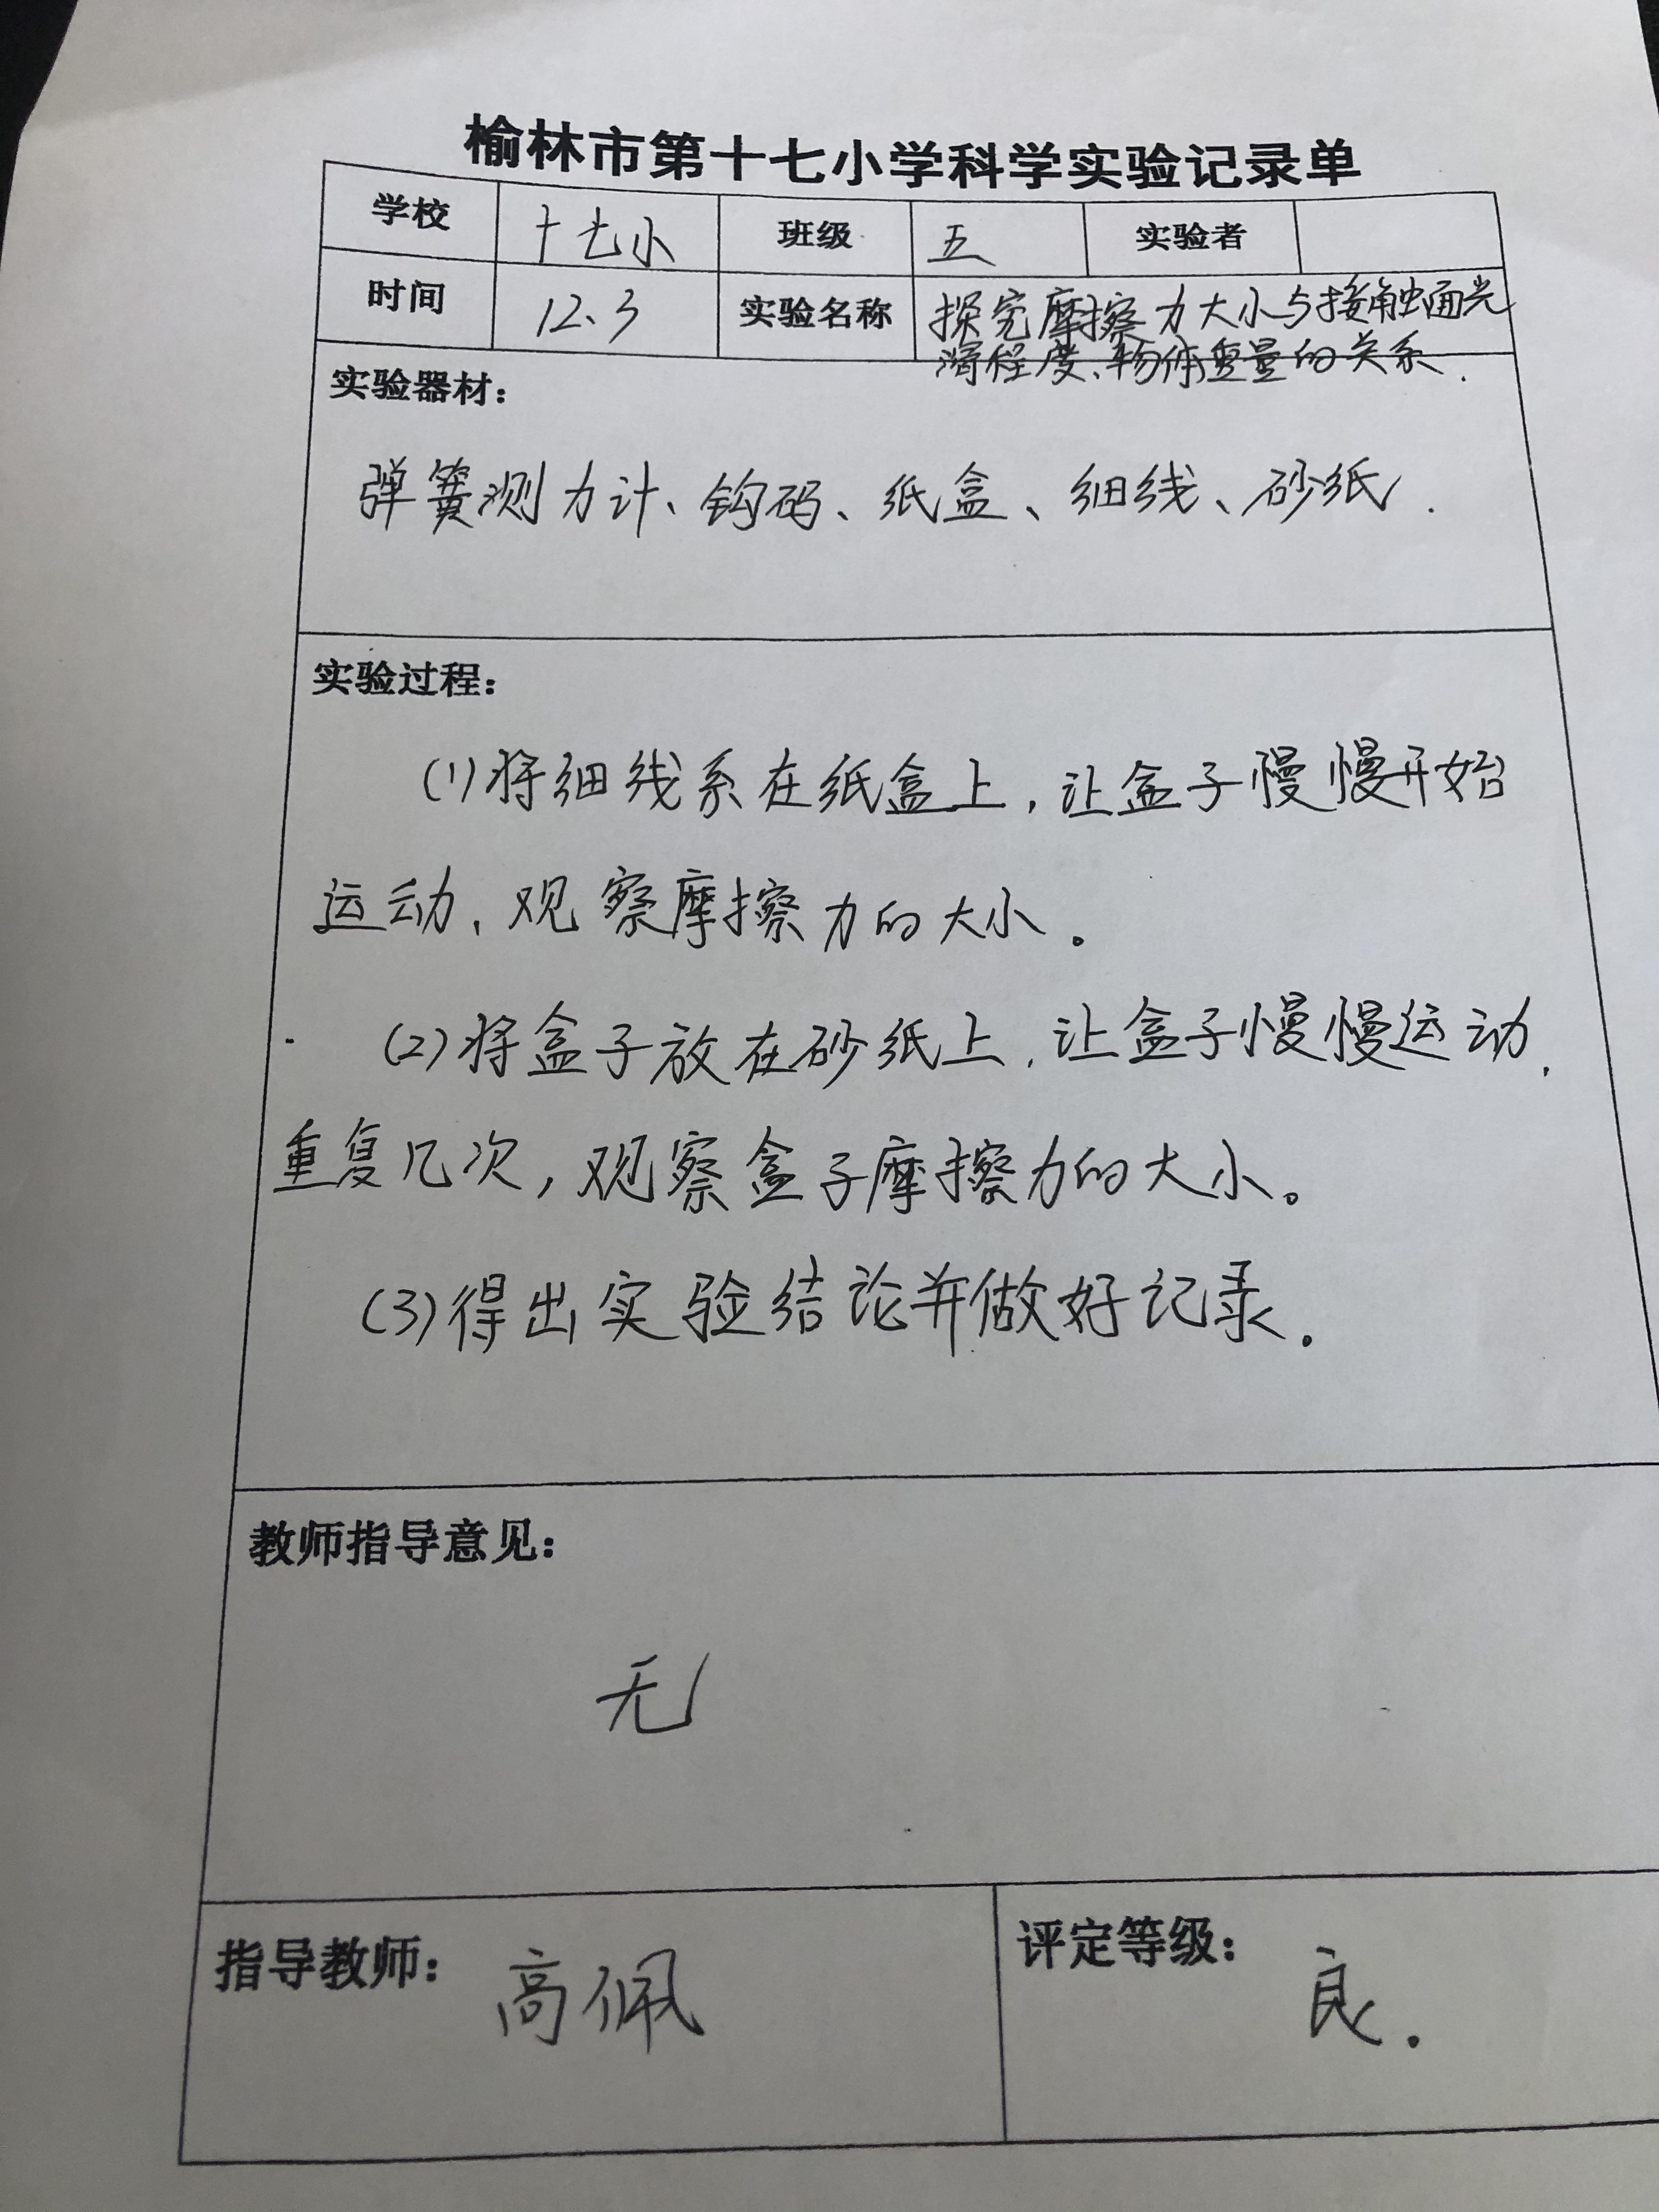 榆林市第十七小学科学实验记录单
学校 十七小 班级 五 实验者
时间 12、3 实验名称 探究摩擦力大小与接触面光
滑程度、物体重量的关系.
实验器材:
弹簧测力计、钩码、纸盒、细线、砂纸.
实验过程:
(1)将细线系在纸盒上,让盒子慢慢开始
运动,观察摩擦力的大小。
(2)将盒子放在砂纸上,让盒子慢慢运动,
重复几次,观察盒子摩擦力的大小。
(3)得出实验结论并做好记录.
教师指导意见:
无
指导教师: 高佩 评定等级: 良.